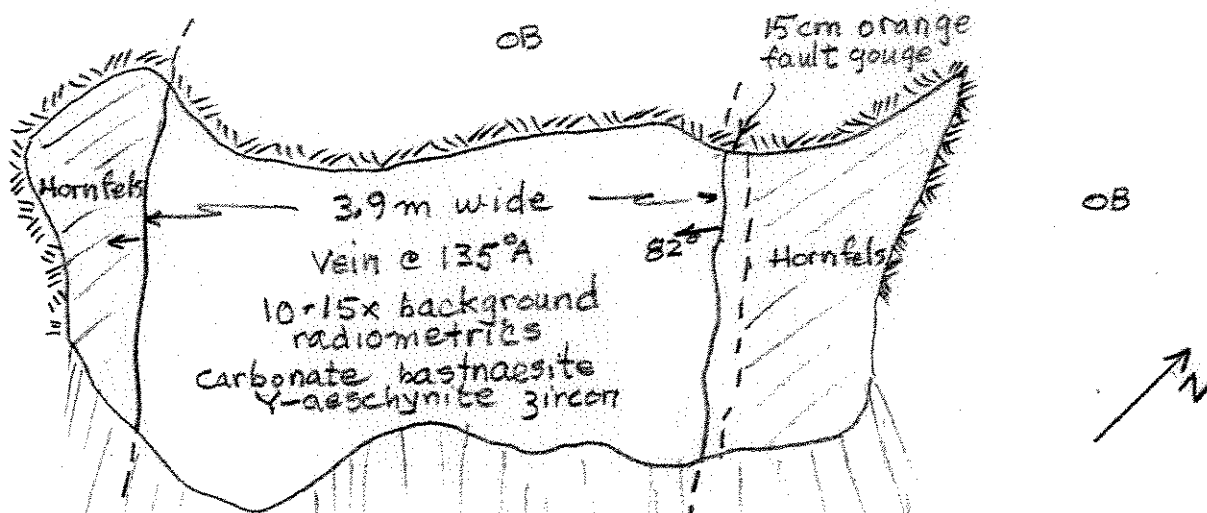 OB
15cm orange
fault gouge
Hornfels
3.9m wide
OB
82°
Hornfels
Vein @ 135°A
10-15x background
radiometrics
carbonate bastnaesite
Y-aeschynite zircon
N